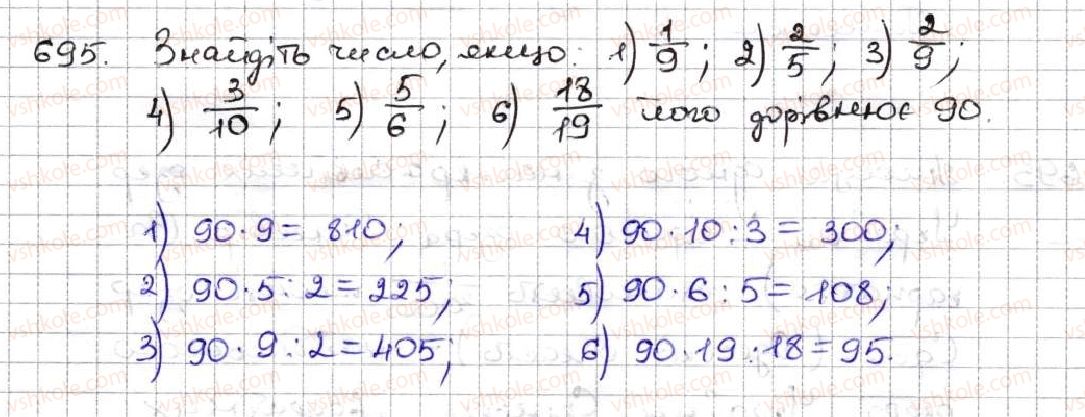 695. Знайдіть число, якщо: 1) 1/9; 2) 2/5; 3) 2/9;
4) 3/10; 5) 5/6; 6) 18/19 його дорівнює 90.
1) 90·9 = 810;
2) 90·5:2 = 225;
3) 90·9:2 = 405;
4) 90·10:3 = 300;
5) 90·6:5 = 108;
6) 90·19:18 = 95.
vshkole.com